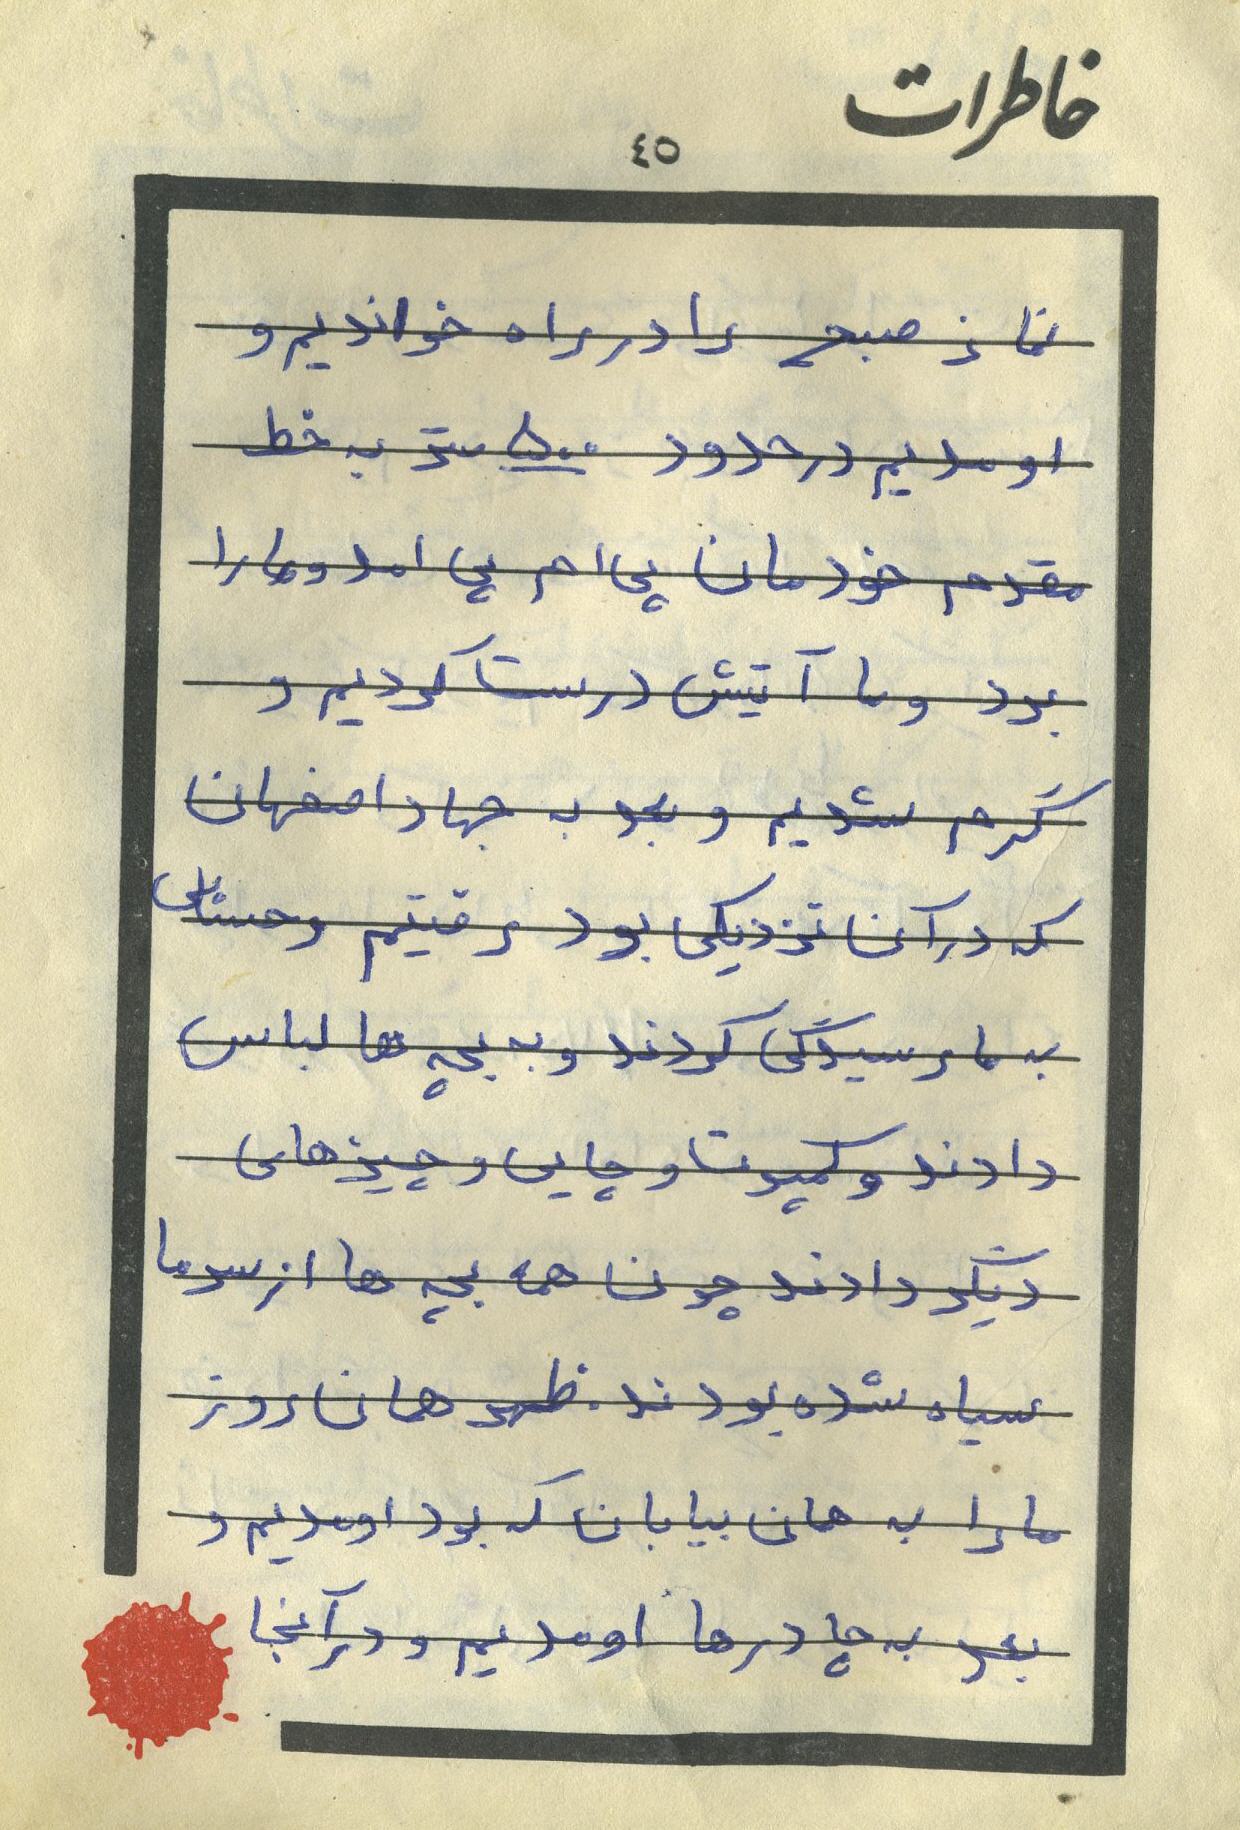 خاطرات
٤٥
نماز صبح را در راه خواندیم و
اومدیم در حدود ۵۰۰ متر به خط
مقدم خودمان پی ام پی امد و ما را
برد و ما آتیش درست کردیم و
گرم شدیم و بعد به جهاد اصفهان
که در آن نزدیکی بود رفتیم و حسابی
به ما رسیدگی کردند و به بچه ها لباس
دادند و کمپوت و چایی و چیزهای
دیگر دادند چون همه بچه ها از سرما
سیاه شده بودند. ظهر همان روز
ما را به همان بیابان که بود اومدیم و
بعد به چادرها اومدیم و در آنجا